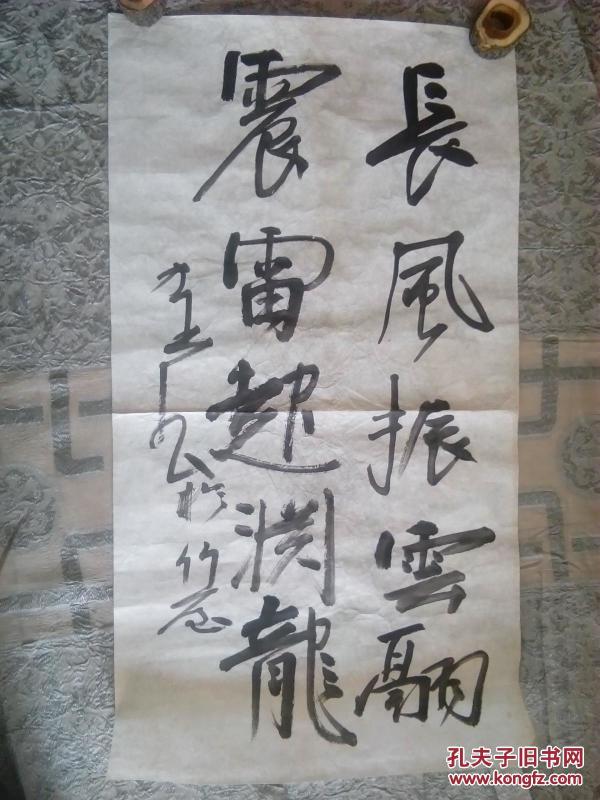 長風振雲翮
震雷起淵龍
於竹
孔夫子旧书网
www.kongfz.com